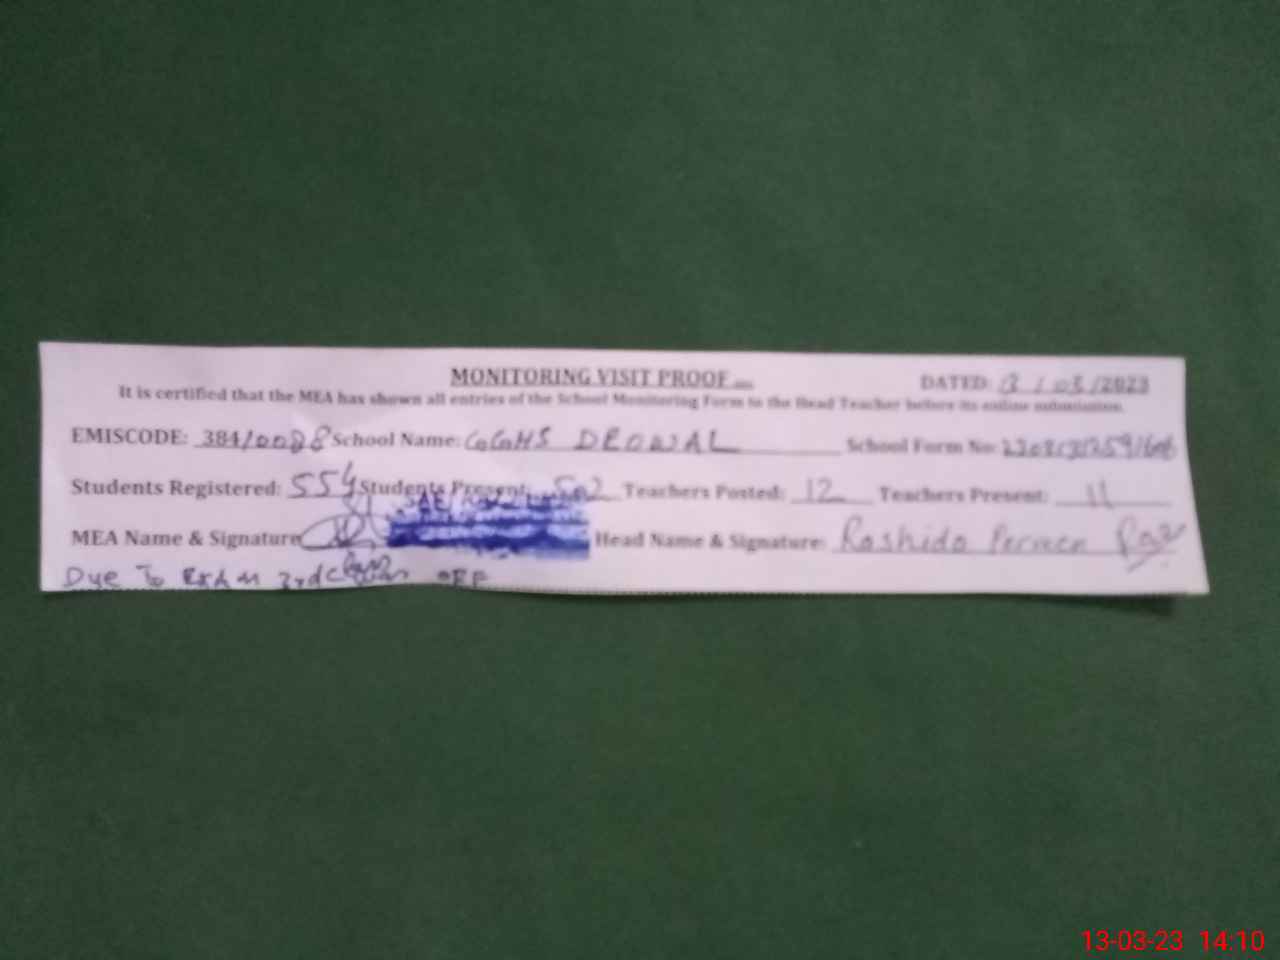 MONITORING VISIT PROOF
DATED: 13/03/2023
It is certified that the MEA has shown all entries of the School Monitoring Form to the Head Teacher before its online submission.
EMISCODE: 384/0088 School Name: GGHS DEOWAL School Form No:
Students Registered: 554 Students Present: 502 Teachers Posted: 12 Teachers Present: 11
MEA Name & Signature Head Name & Signature: Rashida Perveen
Due To Exam 3rd Class OFF
13-03-23 14:10